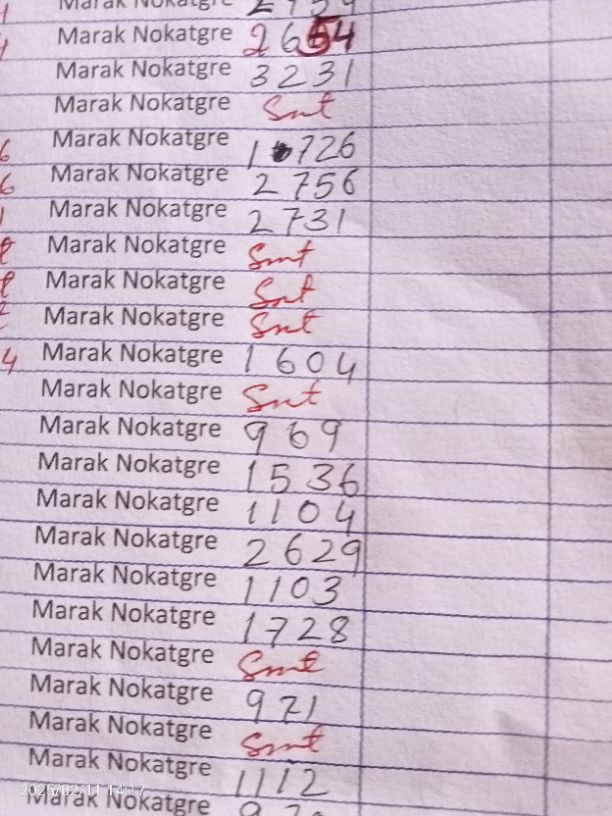 Marak Nokatgre
Marak Nokatgre 2654
Marak Nokatgre 3231
Marak Nokatgre Smt
Marak Nokatgre 1726
Marak Nokatgre 2756
Marak Nokatgre 2731
Marak Nokatgre Smt
Marak Nokatgre Smt
Marak Nokatgre Smt
4 Marak Nokatgre 1604
Marak Nokatgre Smt
Marak Nokatgre 969
Marak Nokatgre 1536
Marak Nokatgre 1104
Marak Nokatgre 2629
Marak Nokatgre 1103
Marak Nokatgre 1728
Marak Nokatgre Smt
Marak Nokatgre 971
Marak Nokatgre Smt
Marak Nokatgre 1112
2025/02/11 14:17
Marak Nokatgre